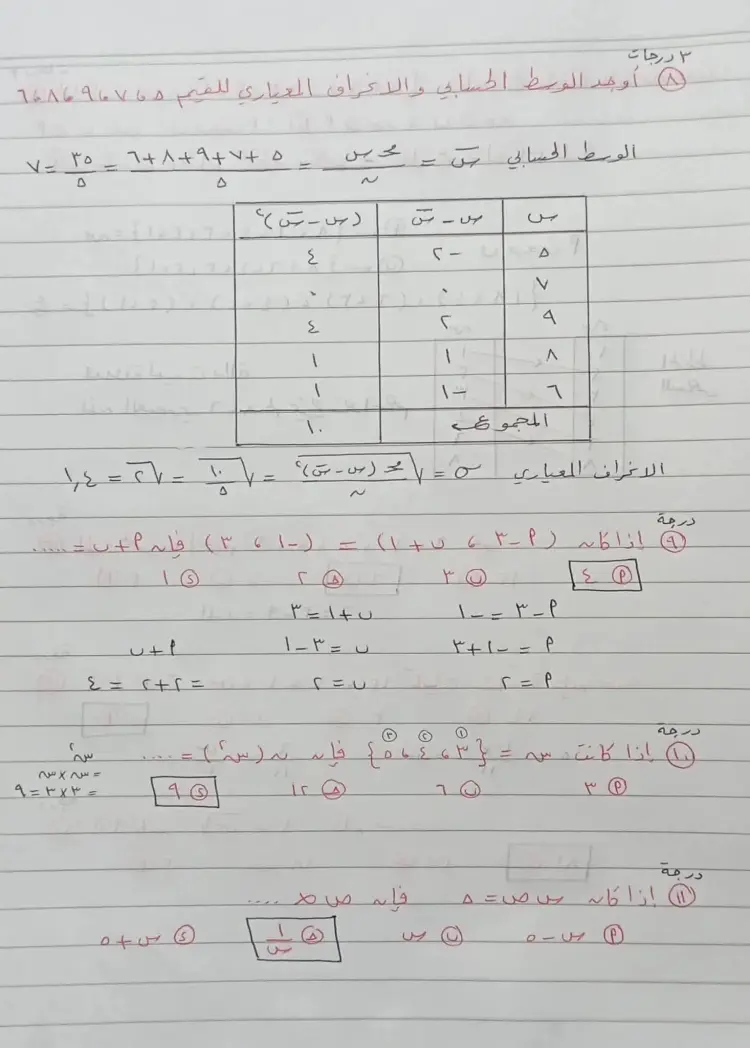 ٣ درجات
٨ أوجد الوسط الحسابي والانحراف المعياري للقيم ٥ ، ٧ ، ٩ ، ٨ ، ٦
الوسط الحسابي س̄ = مجـ س / ن = (٥ + ٧ + ٩ + ٨ + ٦) / ٥ = ٣٥ / ٥ = ٧
س | س - س̄ | (س - س̄)²
٥ | -٢ | ٤
٧ | ٠ | ٠
٩ | ٢ | ٤
٨ | ١ | ١
٦ | -١ | ١
المجموع | ١٠
الانحراف المعياري σ = √(مجـ (س - س̄)² / ن) = √(١٠ / ٥) = √٢ = ١,٤
درجة
٩ إذا كان (أ - ٣ ، ب + ١) = (-١ ، ٣) فإن أ + ب = .....
أ ٤ ب ٣ ج ٢ د ١
أ - ٣ = -١ ب + ١ = ٣
أ = -١ + ٣ ب = ٣ - ١ أ + ب
أ = ٢ ب = ٢ = ٢ + ٢ = ٤
درجة
١ ٢ ٣
١٠ إذا كانت سـ = {٣ ، ٤ ، ٥} فإن ن (سـ²) = .... سـ²
= سـ × سـ
أ ٣ ب ٦ ج ١٢ د ٩ = ٣ × ٣ = ٩
درجة
١١ إذا كان س ص = ٥ فإن ص ∝ ....
أ س - ٥ ب س ج ١ / س د س + ٥